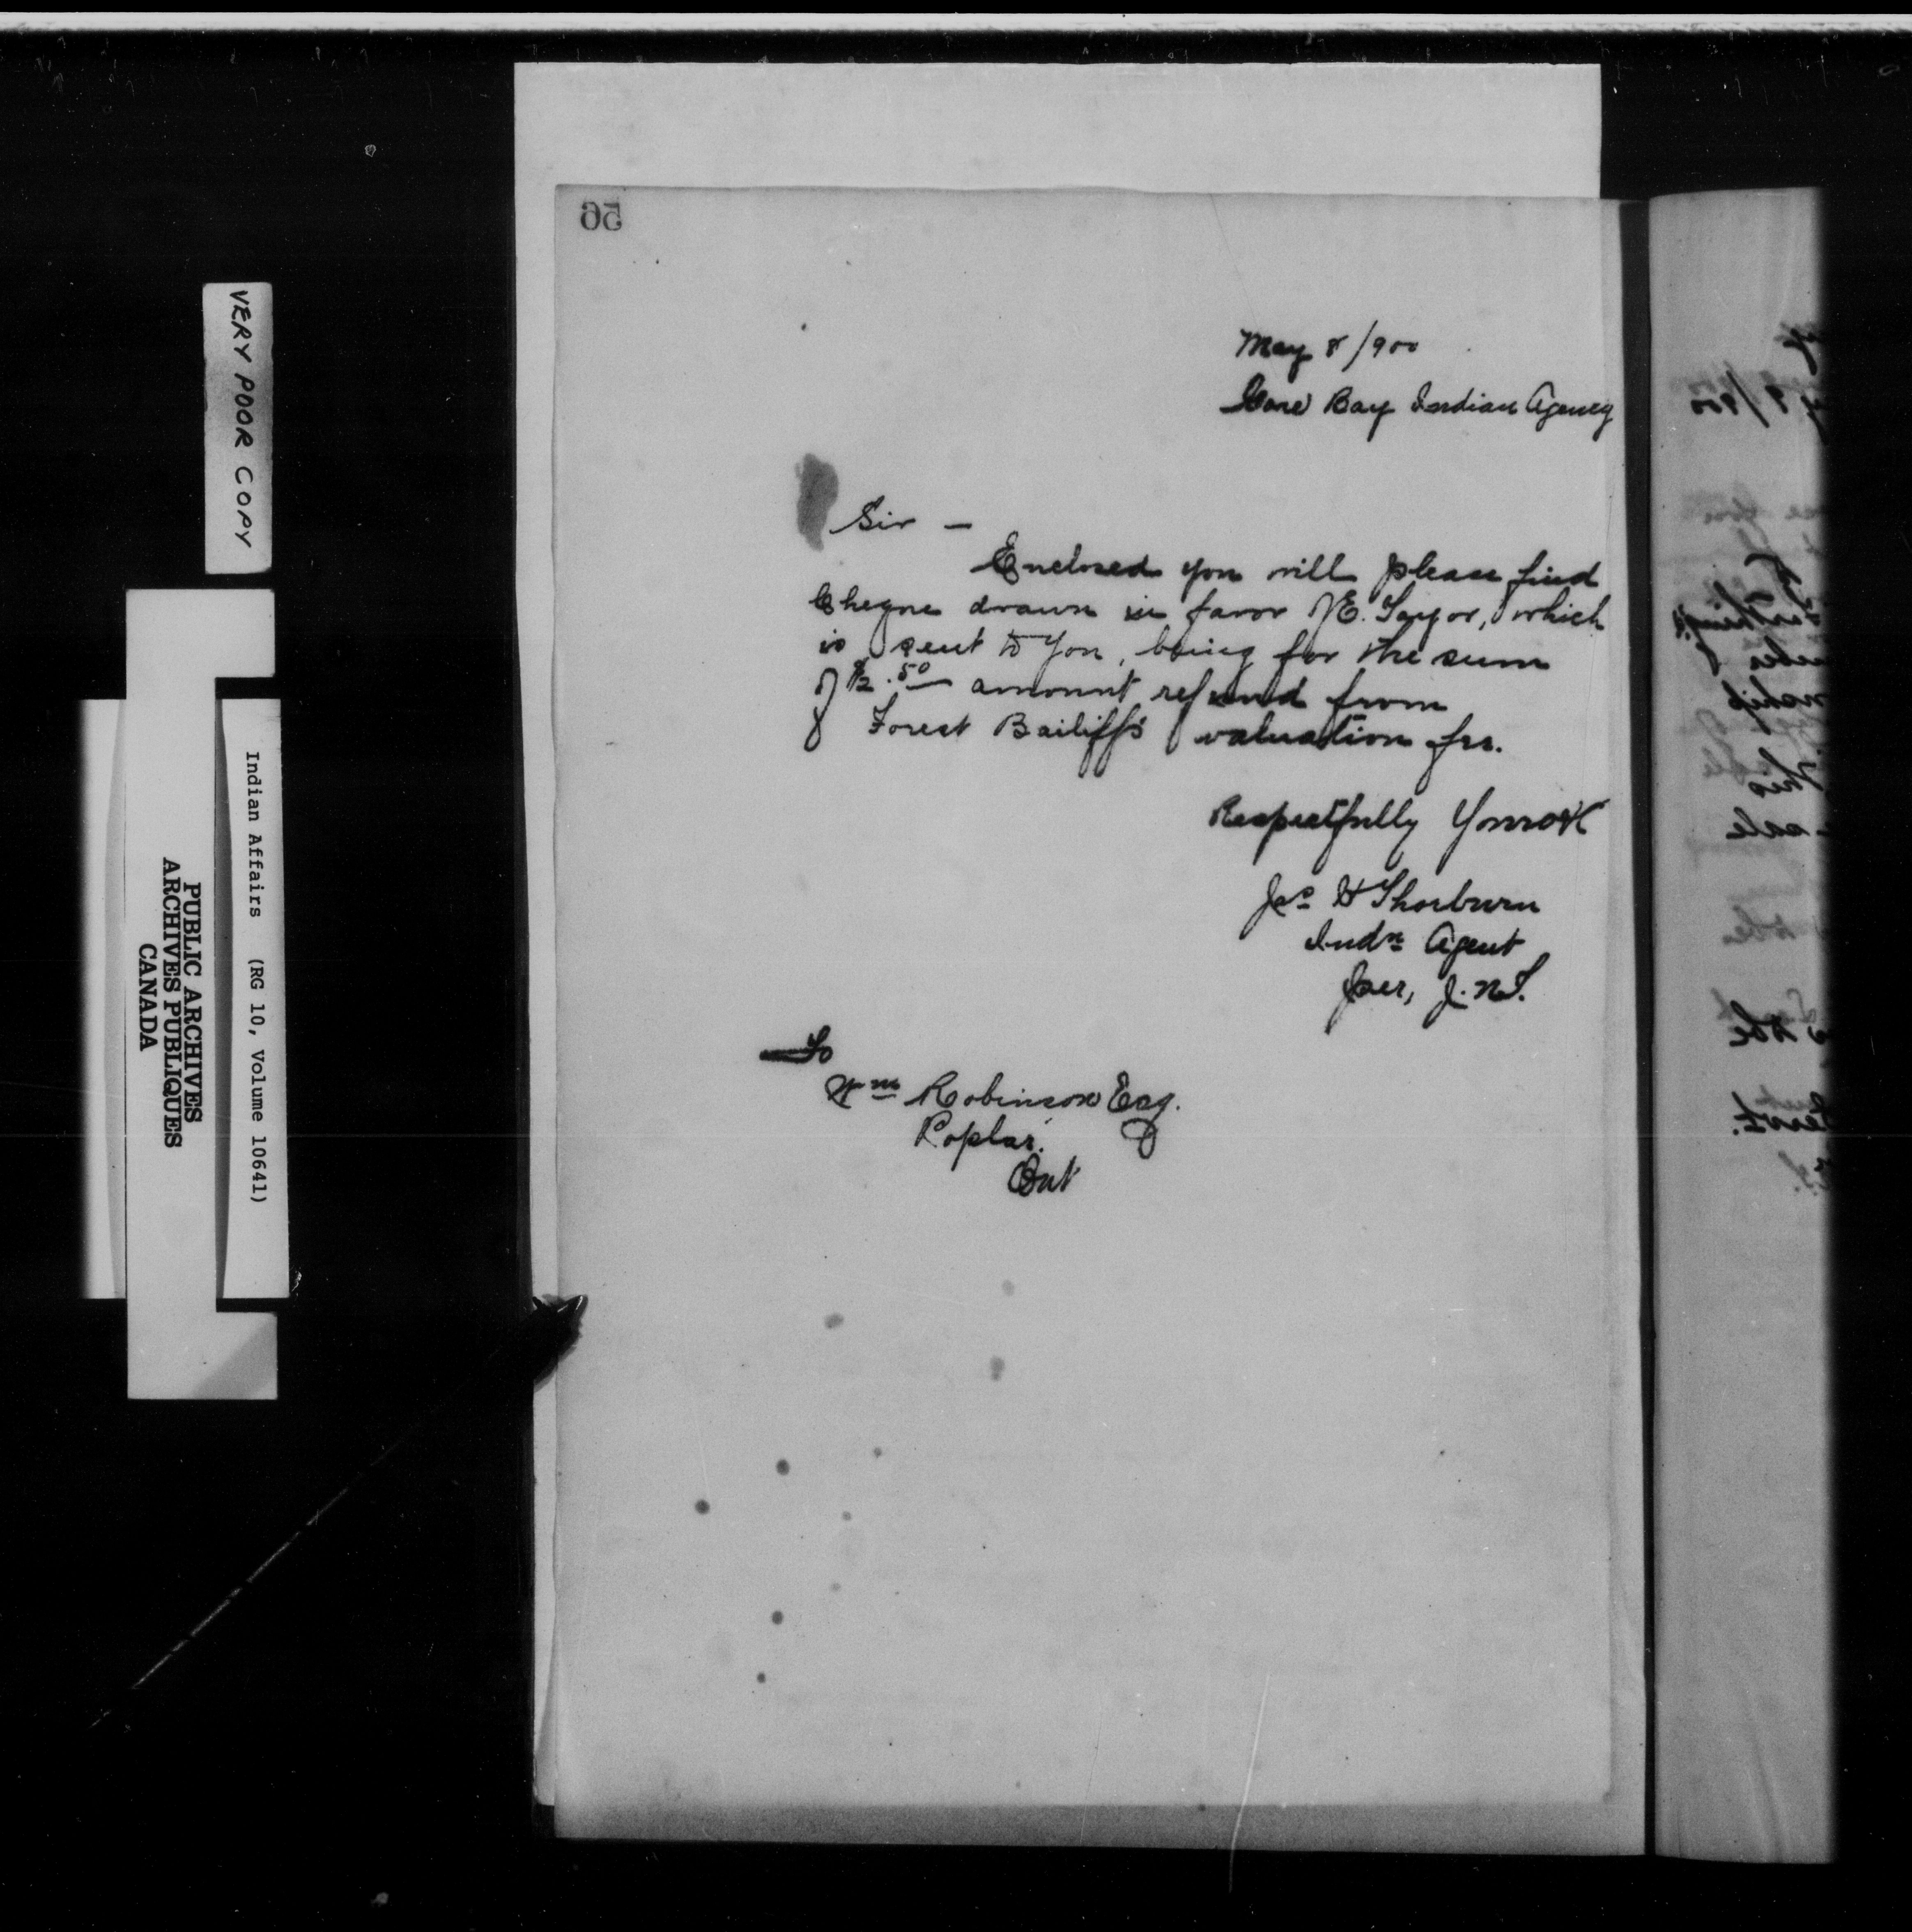 56
May 8/900
Gore Bay Indian Agency
Sir —
Enclosed you will please find
Cheque drawn in favor of E. Taylor, which
is sent to you, being for the sum
of $2.50 amount refund from
Forest Bailiff's valuation fees.
Respectfully Yours
Jas H Thorburn
Indn Agent
per, J.N.T.
To
Wm Robinson Esq.
Poplar.
Ont
VERY POOR COPY
Indian Affairs (RG 10, Volume 10641)
PUBLIC ARCHIVES
ARCHIVES PUBLIQUES
CANADA